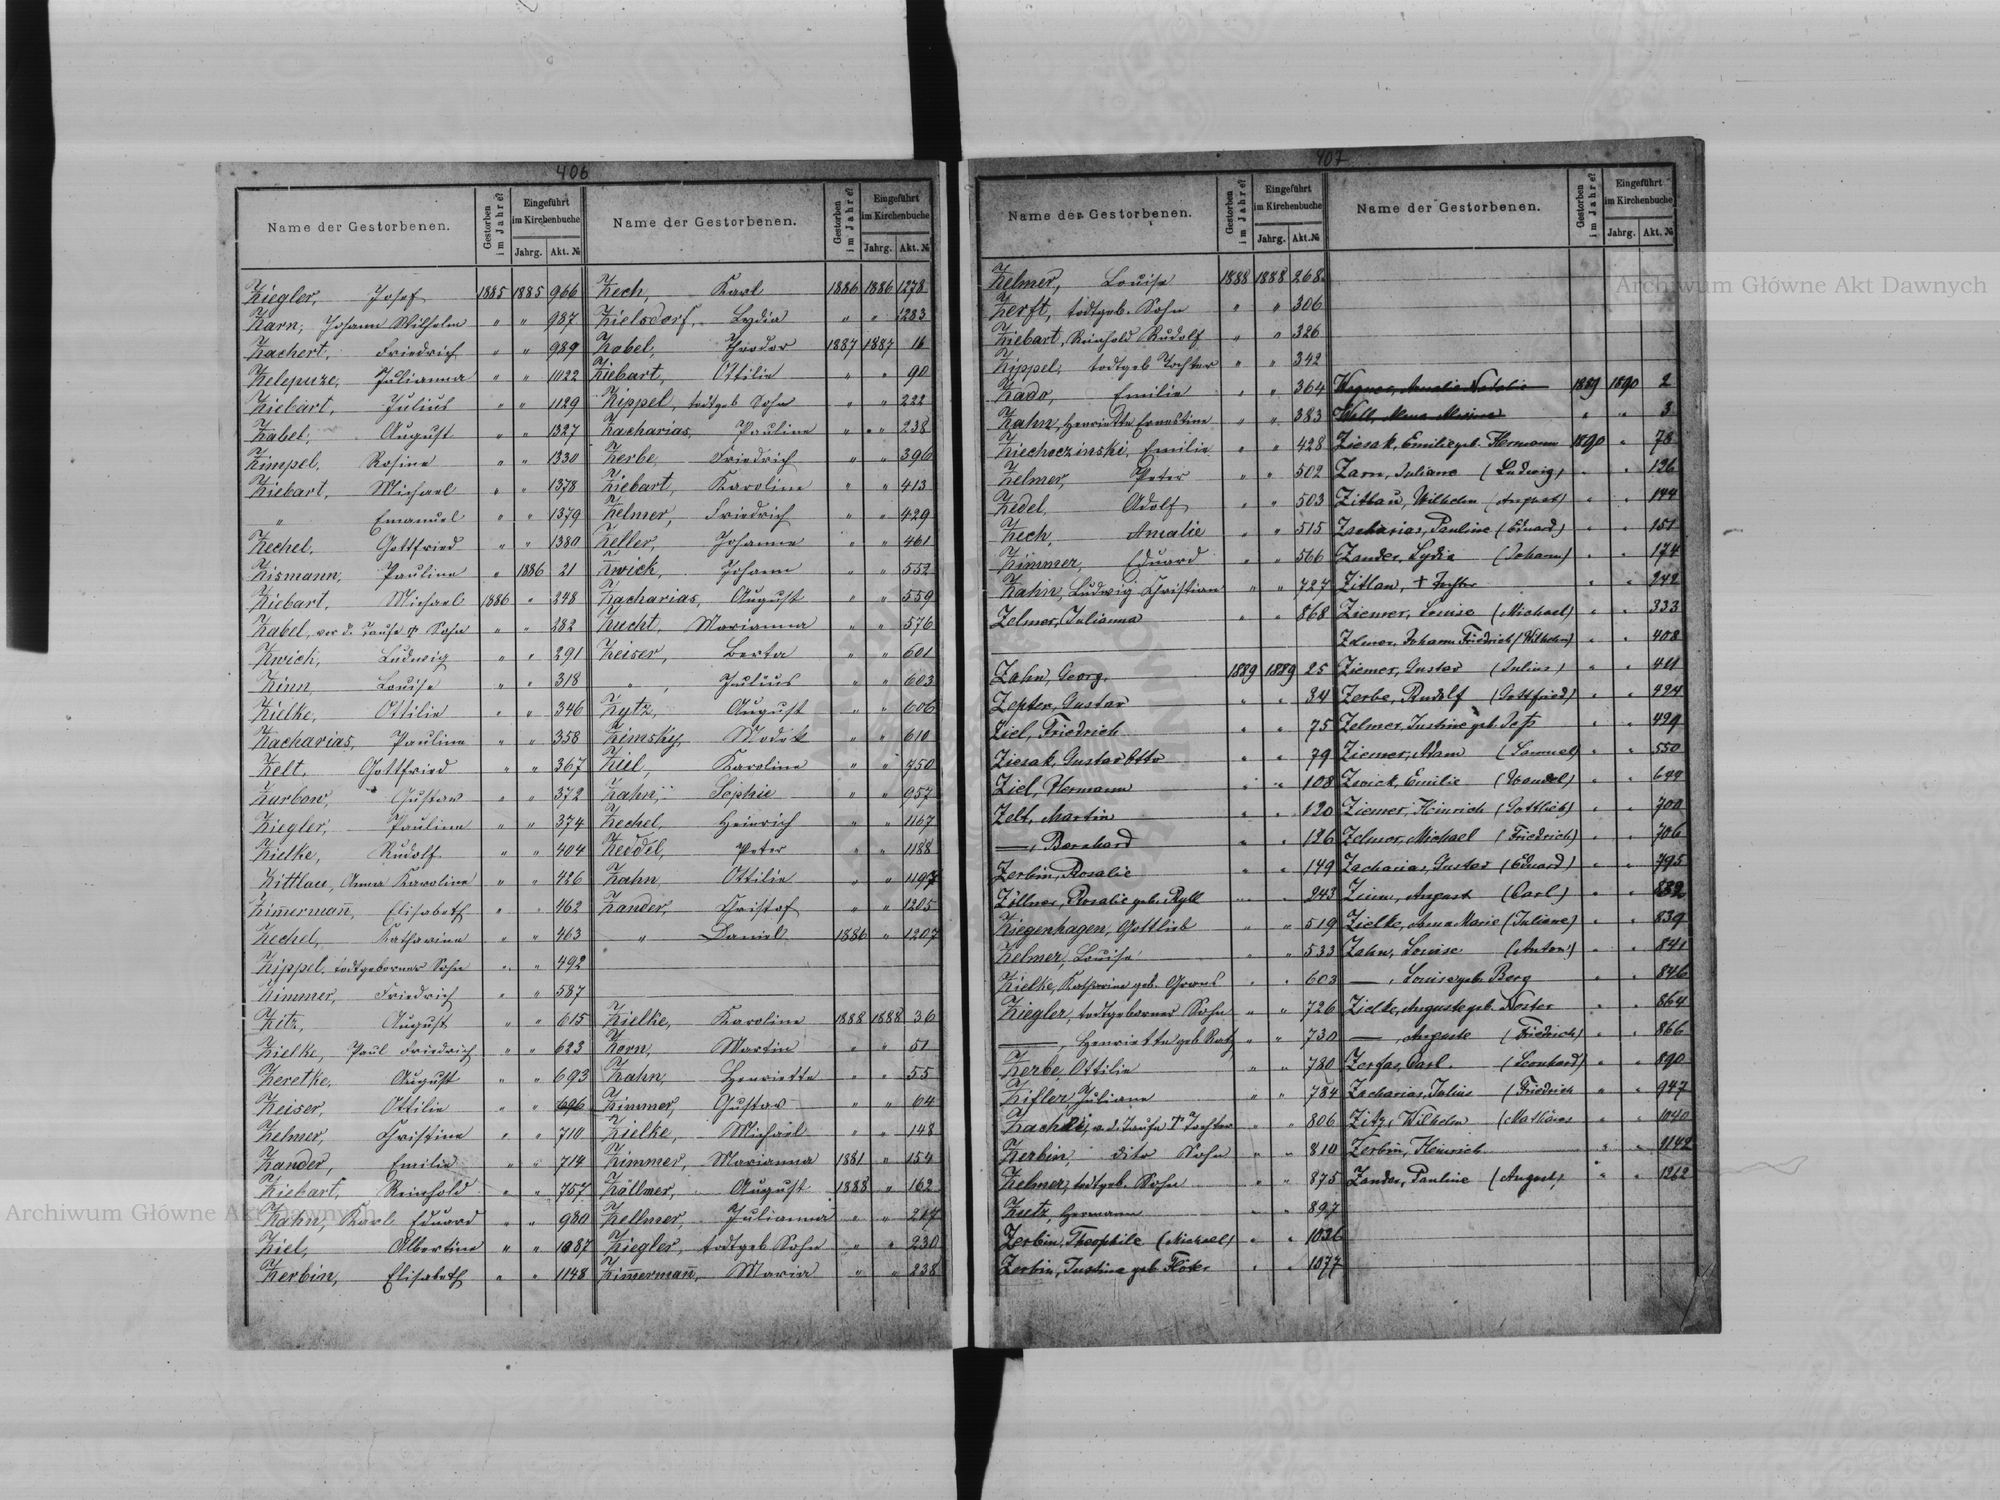 406
Name der Gestorbenen. Gestorben im Jahre? Eingeführt im Kirchenbuche Jahrg. Akt. № Name der Gestorbenen. Gestorben im Jahre? Eingeführt im Kirchenbuche Jahrg. Akt. №
Ziegler, Josef 1885 1885 966
Zarn, Johann Wilhelm " " 987
Zachert, Friedrich " " 989
Zelepuze, Julianna " " 1122
Ziebart, Julius " " 1129
Zabel, August " " 1327
Zimpel, Rosine " " 1330
Ziebart, Michael " " 1378
" Emanuel " " 1379
Zechel, Gottfried " " 1380
Zismann, Pauline " 1886 21
Ziebart, Michael 1886 " 248
Zabel, vor d. Taufe † Sohn " " 282
Zwick, Ludwig " " 291
Zinn, Louise " " 318
Zielke, Ottilie " " 346
Zacharias, Pauline " " 358
Zelt, Gottfried " " 367
Zurbow, Gustav " " 372
Ziegler, Pauline " " 374
Zielke, Rudolf " " 404
Zittlau, Anna Karoline " " 426
Zim̄erman̄, Elisabeth " " 462
Zechel, Katharina " " 463
Zippel, todtgeborner Sohn " " 492
Zimmer, Friedrich " " 587
Zitz, August " " 615
Zielke, Paul Friedrich " " 623
Zeretke, August " " 693
Zeiser, Ottilie " " 696
Zelmer, Christine " " 710
Zander, Emilie " " 714
Ziebart, Reinhold " " 757
Zahn, Karl Eduard " " 980
Ziel, Albertine " " 1087
Zerbin, Elisabeth " " 1148
Zech, Karl 1886 1886 1278
Zielsdorf, Lydia " " 1283
Zabel, Theodor 1887 1887 16
Ziebart, Ottilie " " 90
Zippel, todtgeb Sohn " " 222
Zacharias, Pauline " " 238
Zerbe, Friedrich " " 396
Ziebart, Karoline " " 413
Zelmer, Friedrich " " 429
Zeller, Johanne " " 461
Zwick, Johann " " 552
Zacharias, August " " 559
Zucht, Marianna " " 576
Zeiser, Berta " " 601
" , Julius " " 603
Zytz, August " " 606
Zimsky, " " 610
Ziel, Karoline " " 750
Zahn, Sophie " " 957
Zechel, Heinrich " " 1167
Zeidel, Peter " " 1188
Zahn Ottilie " " 1197
Zander, Christof " " 1205
" Daniel 1886 " 1207
Zielke, Karoline 1888 1888 36
Zorn, Martin " " 51
Zahn, Henriette " " 55
Zimmer, Gustav " " 64
Zielke, Michael " " 148
Zimmer, Marianna 1881 " 154
Zöllmer, August 1888 " 162
Zellmer, Julianna " " 217
Ziegler, todtgeb Sohn " " 230
Zim̄erman̄, Maria " " 238
407
Name der Gestorbenen. Gestorben im Jahre? Eingeführt im Kirchenbuche Jahrg. Akt. № Name der Gestorbenen. Gestorben im Jahre? Eingeführt im Kirchenbuche Jahrg. Akt. №
Zelmer, Louise 1888 1888 268
Zerft, todtgeb. Sohn " " 306
Ziebart, Reinhold Rudolf " " 326
Zippel, todtgeb Tochter " " 342
Zado, Emilie " " 364
Zahn, Henriette Ernestine " " 383
Ziechoczinski, Emilie " " 428
Zelmer, Peter " " 502
Zedel, Adolf " " 503
Zech, Amalie " " 515
Zimmer, Eduard " " 566
Zahn, Ludwig Christian " " 727
Zelmer, Julianna 868
Zahn, Georg 1889 1889 25
Zepter, Gustav " " 34
Ziel, Friedrich " " 75
Ziesak, Gustav Otto " " 79
Ziel, Hermann " " 108
Zelt, Martin " " 120
—, Bernhard " " 126
Zerbin, Rosalie " " 149
Zöllner, Rosalie geb. Ryll " " 243
Ziegenhagen, Gottlieb " " 519
Zelmer, Louise " " 533
Zielke, Katharine geb. " " 603
Ziegler, todtgeborner Sohn " " 726
—, Henriette geb Ratz " " 730
Zerbe, Ottilie " " 780
Zifler, Juliane " " 784
v. d. Taufe † Tochter " " 806
Zerbin, dito Sohn " " 810
Zelmer, todtgeb. Sohn " " 875
Zutz, Hermann " " 897
Zerbin, Theophile (Michael) " " 1036
Zerbin, Justine geb " " 1077
Wegner, Amalie Natalie 1889 1890 2
" " 3
Ziesak, Emilie geb. Hermann 1890 " 78
Zarn, Juliane (Ludwig) " " 136
Zittau, Wilhelm (August) " " 144
Zacharias, Pauline (Eduard) " " 151
Zander, Lydia (Johann) " " 174
Zitlau, † Tochter " " 242
Ziemer, Louise (Michael) " " 333
Zelmer, Johann Friedrich (Wilhelm) " " 408
Ziemer, Gustav (Julius) " " 411
Zerbe, Rudolf (Gottfried) " " 424
Zelmer, Justine geb. " " 429
Ziemer, Adam (Samuel) " " 550
Zwick, Emilie " " 644
Ziemer, Heinrich (Gottlieb) " " 700
Zelmer, Michael (Friedrich) " " 706
Zacharias, Gustav (Eduard) " " 795
August (Carl) " " 832
Zielke, Anna Marie (Juliane) " " 839
Zahn, Louise (Anton) " " 841
—, Louise geb. Berg " " 846
Zielke, Auguste geb. Koster " " 864
—, Auguste (Friedrich) " " 866
Zerfas, Carl (Leonhard) " " 890
Zacharias, Julius (Friedrich " " 947
Zitz, Wilhelm (Mathäus " " 1040
Zerbin, Heinrich " " 1142
Zander, Pauline (August) " " 1262
Archiwum Główne Akt Dawnych
Archiwum Główne Akt Dawnych